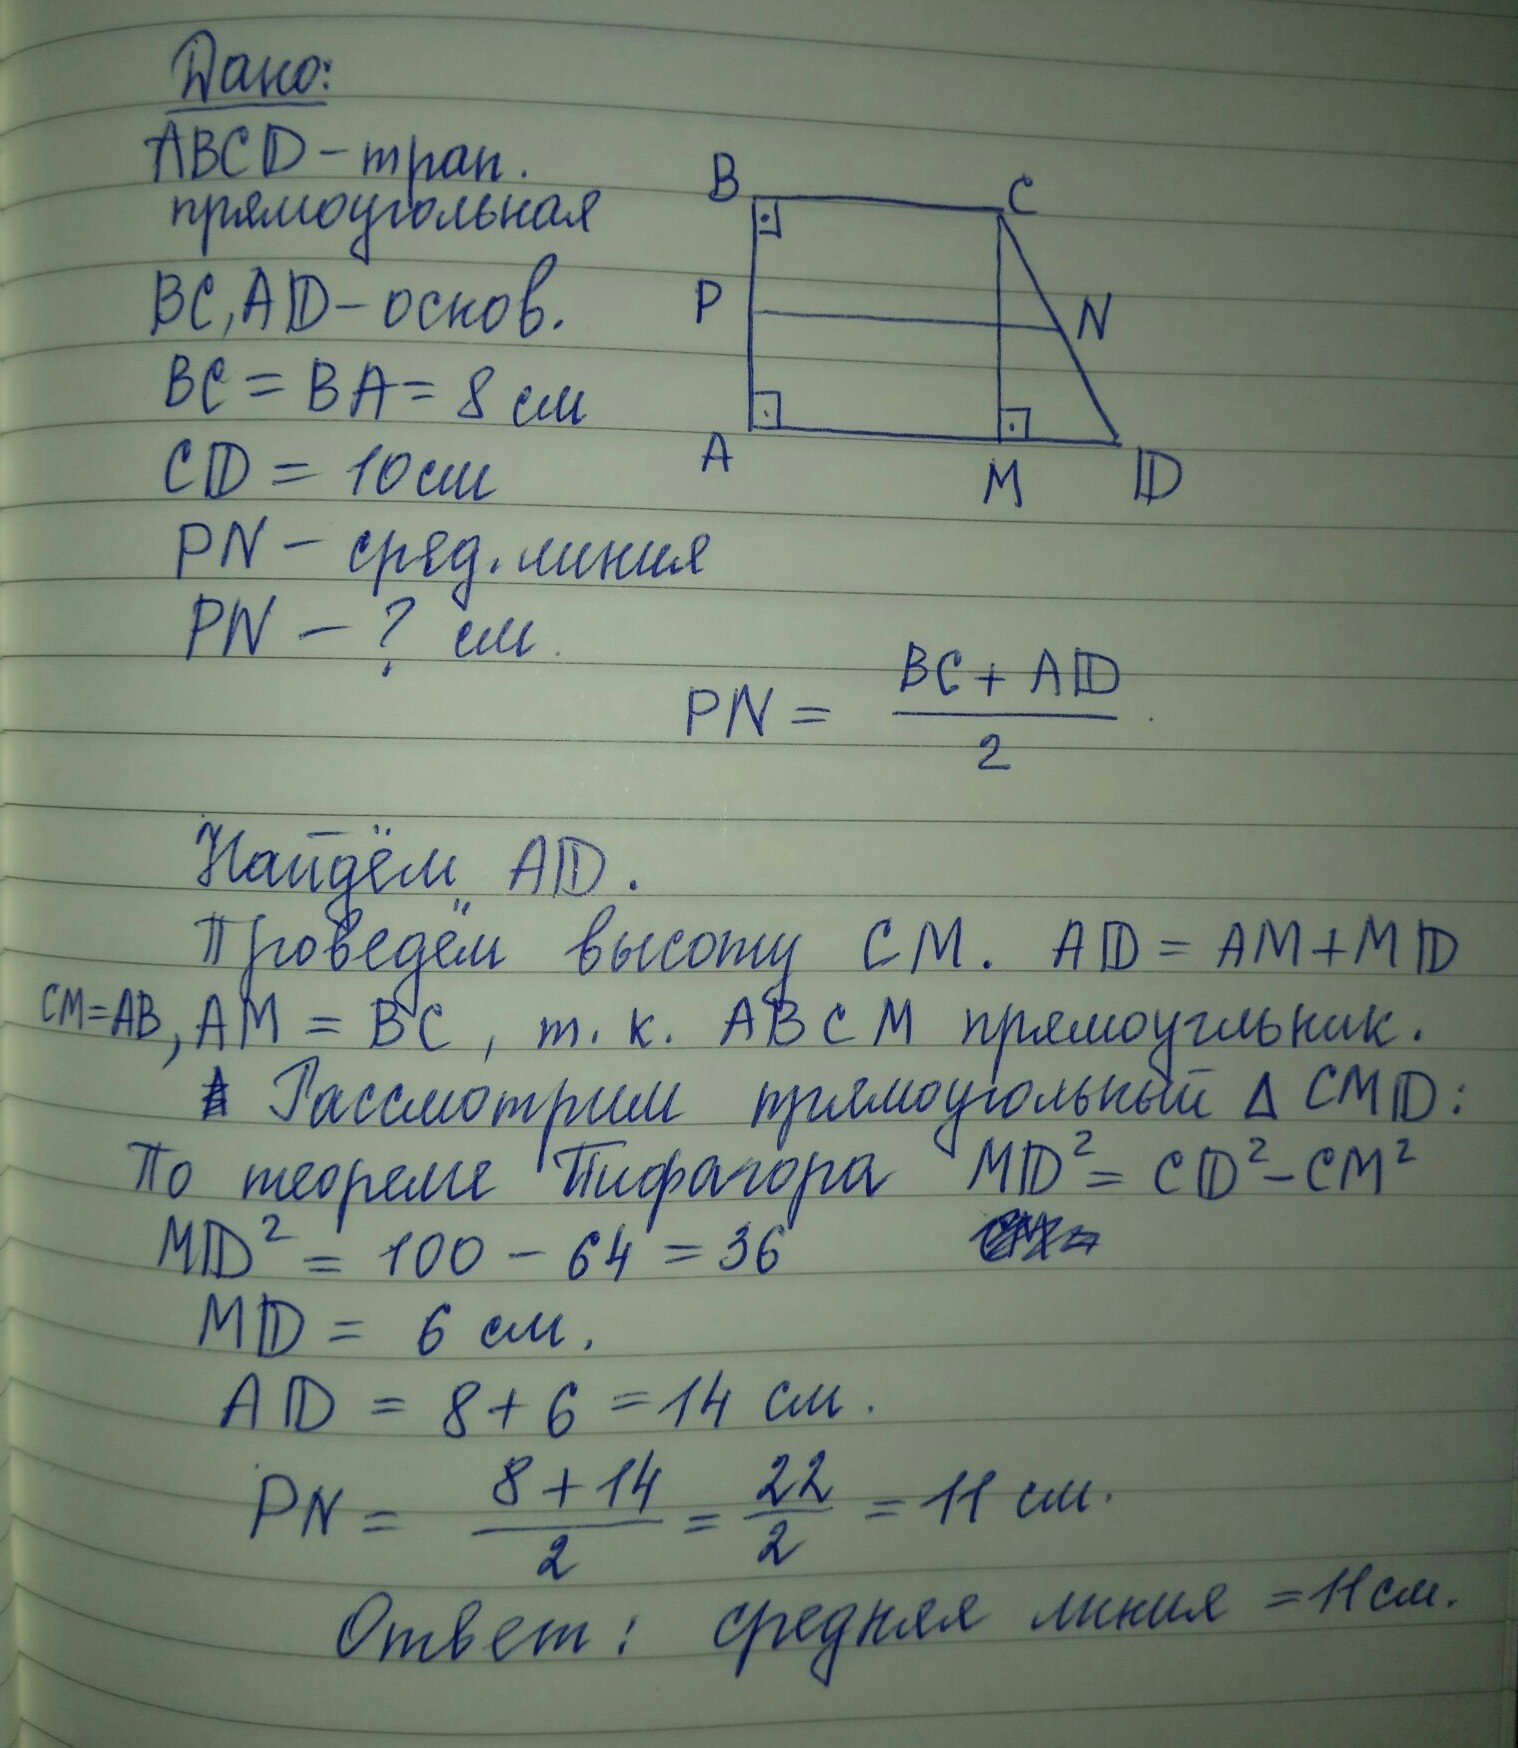 Дано:
ABCD – трап.
прямоугольная
BC, AD – основ.
BC = BA = 8 см
CD = 10 см
PN – сред. линия
PN – ? см.
B
C
P
N
A
M
D
PN = (BC + AD) / 2
Найдём AD.
Проведём высоту CM. AD = AM + MD
CM = AB, AM = BC, т. к. ABCM прямоугльник.
Рассмотрим прямоугольный Δ CMD:
По теореме Пифагора MD² = CD² – CM²
MD² = 100 – 64 = 36
MD = 6 см.
AD = 8 + 6 = 14 см.
PN = (8 + 14) / 2 = 22 / 2 = 11 см.
Ответ: средняя линия = 11 см.